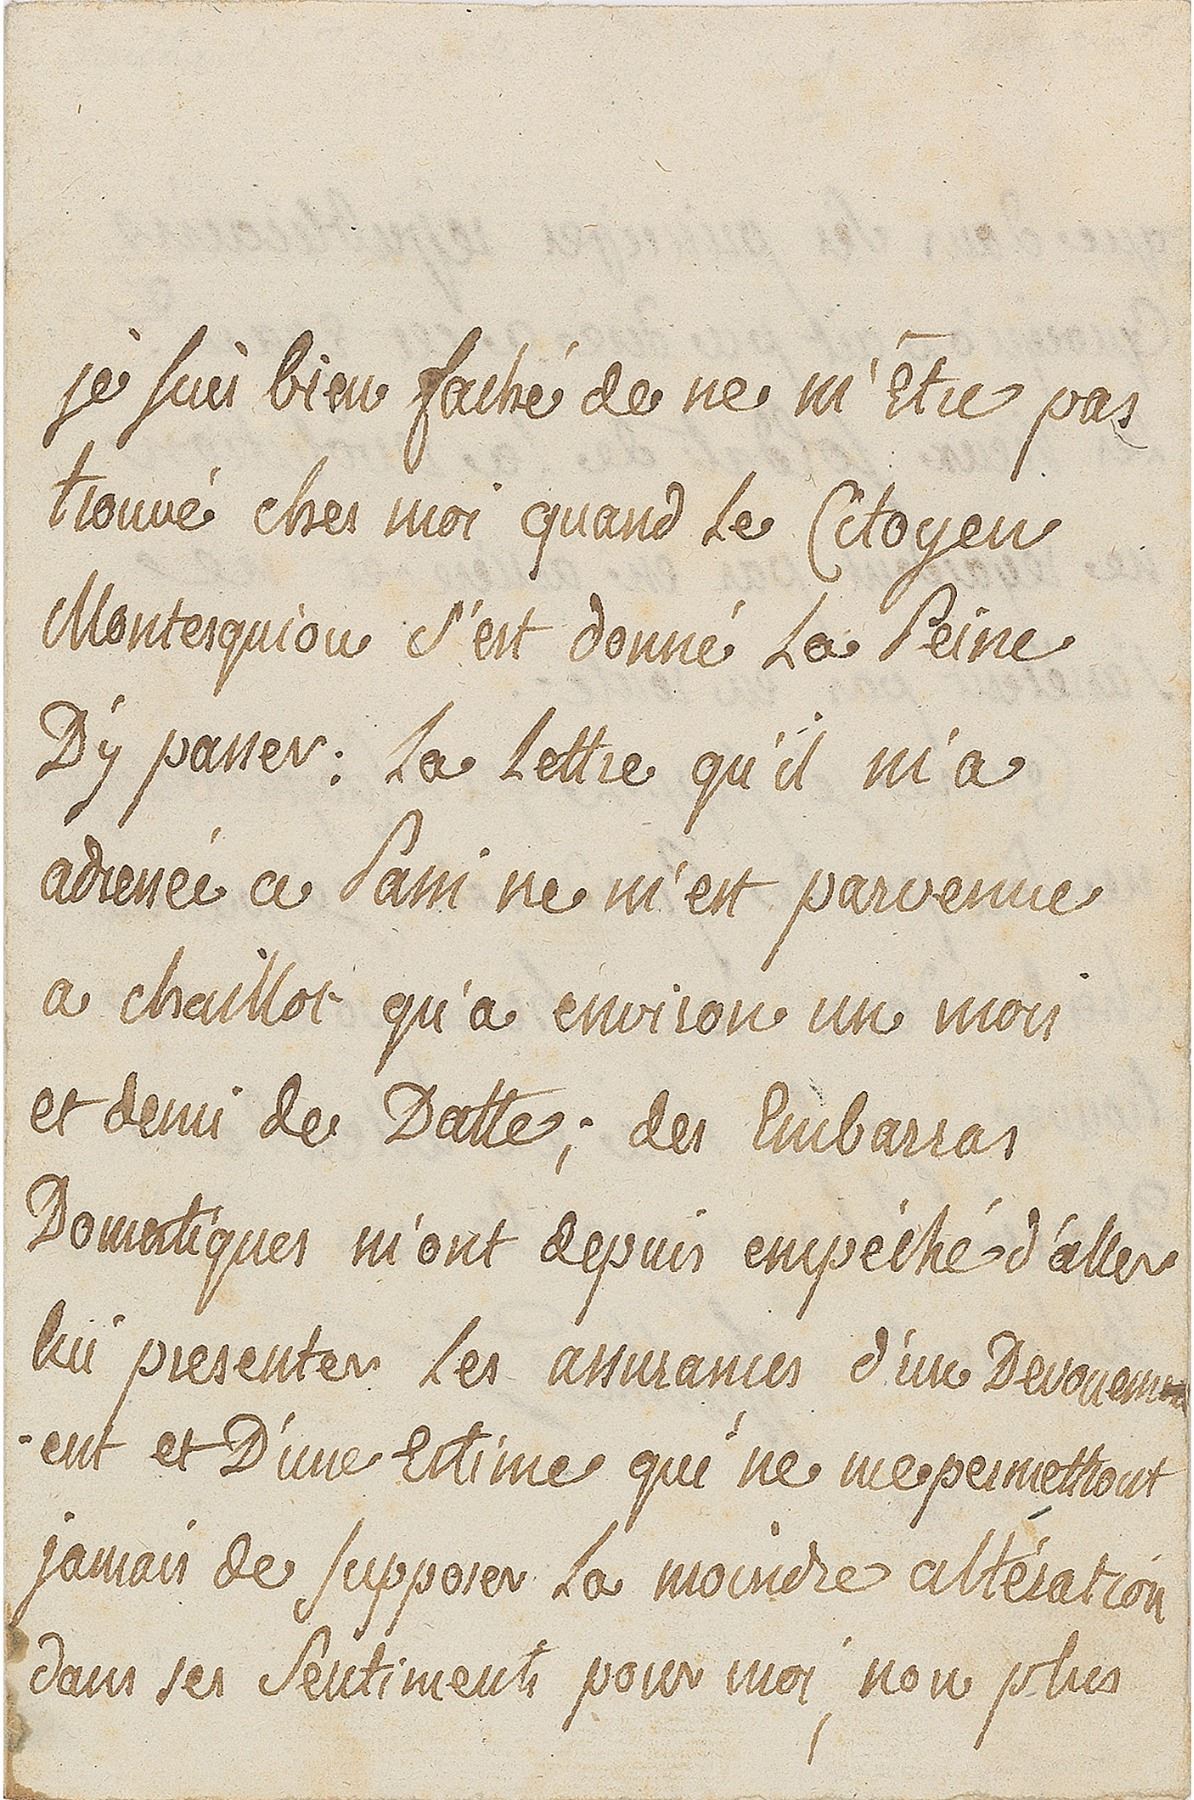 je suis bien faché de ne m'Être pas
trouvé ches moi quand Le Citoyen
Montesquiou s'est donné La Peine
D'y passer: La Lettre qu'il m'a
adressée a Passi ne m'est parvenue
a chaillot qu'a environ un mois
et demi de Datte; des Embarras
Domestiques m'ont depuis empéché d'aller
lui presenter Les assurances d'un Devouem
-ent et D'une Estime qui ne me permettront
jamais de supposer La moindre altération
dans ses Sentiments pour moi, non plus